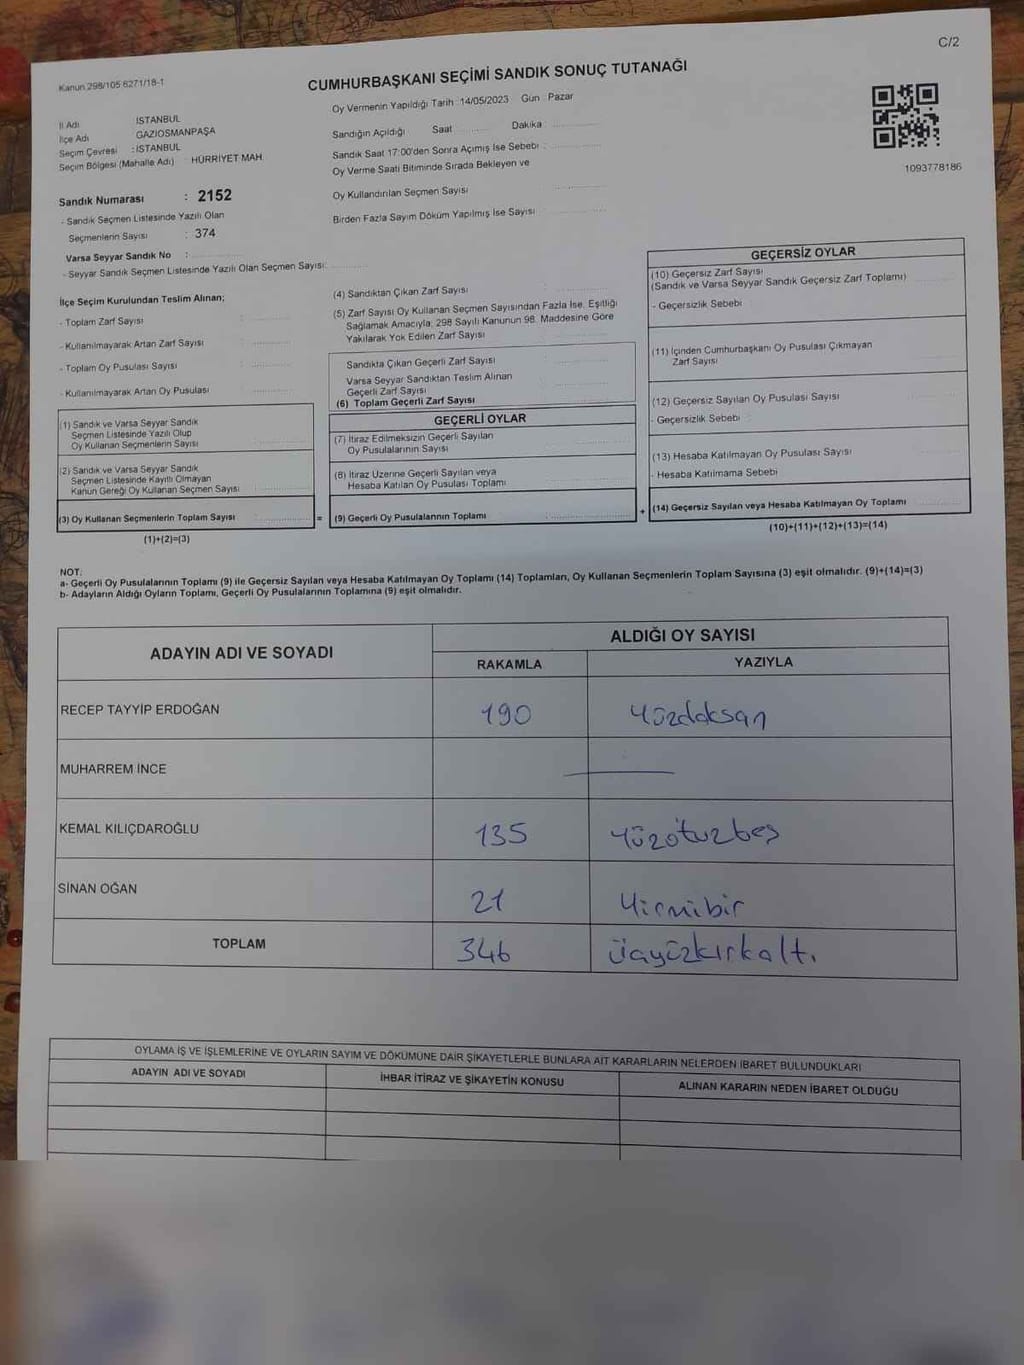 C/2
Kanun 298/105 6271/18-1
CUMHURBAŞKANI SEÇİMİ SANDIK SONUÇ TUTANAĞI
Oy Vermenin Yapıldığı Tarih :14/05/2023 Gün : Pazar
İl Adı İSTANBUL
İlçe Adı GAZİOSMANPAŞA
Seçim Çevresi : İSTANBUL
Seçim Bölgesi (Mahalle Adı) : HÜRRİYET MAH.
Sandığın Açıldığı Saat Dakika :
Sandık Saat 17:00'den Sonra Açımış İse Sebebi :
Oy Verme Saati Bitiminde Sırada Bekleyen ve
Oy Kullandırılan Seçmen Sayısı
Birden Fazla Sayım Döküm Yapılmış İse Sayısı
1093778186
Sandık Numarası : 2152
- Sandık Seçmen Listesinde Yazılı Olan
Seçmenlerin Sayısı : 374
Varsa Seyyar Sandık No :
- Seyyar Sandık Seçmen Listesinde Yazılı Olan Seçmen Sayısı:
İlçe Seçim Kurulundan Teslim Alınan;
- Toplam Zarf Sayısı :
- Kullanılmayarak Artan Zarf Sayısı :
- Toplam Oy Pusulası Sayısı :
- Kullanılmayarak Artan Oy Pusulası :
(1) Sandık ve Varsa Seyyar Sandık
Seçmen Listesinde Yazılı Olup
Oy Kullanan Seçmenlerin Sayısı
(2) Sandık ve Varsa Seyyar Sandık
Seçmen Listesinde Kayıtlı Olmayan
Kanun Gereği Oy Kullanan Seçmen Sayısı
(3) Oy Kullanan Seçmenlerin Toplam Sayısı
(1)+(2)=(3)
(4) Sandıktan Çıkan Zarf Sayısı
(5) Zarf Sayısı Oy Kullanan Seçmen Sayısından Fazla İse, Eşitliği
Sağlamak Amacıyla, 298 Sayılı Kanunun 98. Maddesine Göre
Yakılarak Yok Edilen Zarf Sayısı
Sandıkta Çıkan Geçerli Zarf Sayısı
Varsa Seyyar Sandıktan Teslim Alınan
Geçerli Zarf Sayısı
(6) Toplam Geçerli Zarf Sayısı
GEÇERLİ OYLAR
(7) İtiraz Edilmeksizin Geçerli Sayılan
Oy Pusulalarının Sayısı
(8) İtiraz Üzerine Geçerli Sayılan veya
Hesaba Katılan Oy Pusulası Toplamı
= (9) Geçerli Oy Pusulalarının Toplamı
GEÇERSİZ OYLAR
(10) Geçersiz Zarf Sayısı
(Sandık ve Varsa Seyyar Sandık Geçersiz Zarf Toplamı)
- Geçersizlik Sebebi
(11) İçinden Cumhurbaşkanı Oy Pusulası Çıkmayan
Zarf Sayısı
(12) Geçersiz Sayılan Oy Pusulası Sayısı
- Geçersizlik Sebebi :
(13) Hesaba Katılmayan Oy Pusulası Sayısı
- Hesaba Katılmama Sebebi
+ (14) Geçersiz Sayılan veya Hesaba Katılmayan Oy Toplamı
(10)+(11)+(12)+(13)=(14)
NOT:
a- Geçerli Oy Pusulalarının Toplamı (9) ile Geçersiz Sayılan veya Hesaba Katılmayan Oy Toplamı (14) Toplamları, Oy Kullanan Seçmenlerin Toplam Sayısına (3) eşit olmalıdır. (9)+(14)=(3)
b- Adayların Aldığı Oyların Toplamı, Geçerli Oy Pusulalarının Toplamına (9) eşit olmalıdır.
ADAYIN ADI VE SOYADI ALDIĞI OY SAYISI
RAKAMLA YAZIYLA
RECEP TAYYİP ERDOĞAN 190 Yüzdoksan
MUHARREM İNCE
KEMAL KILIÇDAROĞLU 135 Yüzotuzbeş
SİNAN OĞAN 21 Yirmibir
TOPLAM 346 üçyüzkırkaltı
OYLAMA İŞ VE İŞLEMLERİNE VE OYLARIN SAYIM VE DÖKÜMÜNE DAİR ŞİKAYETLERLE BUNLARA AİT KARARLARIN NELERDEN İBARET BULUNDUKLARI
ADAYIN ADI VE SOYADI İHBAR İTİRAZ VE ŞİKAYETİN KONUSU ALINAN KARARIN NEDEN İBARET OLDUĞU